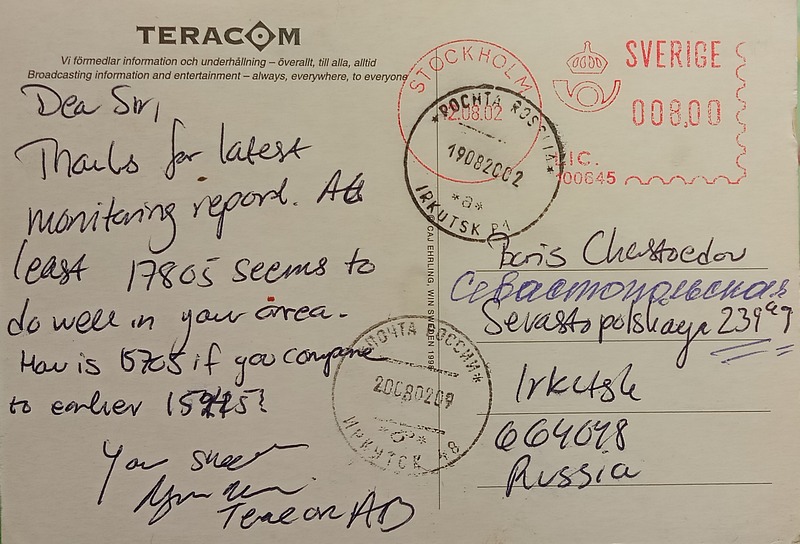 TERACOM
Vi förmedlar information och underhållning – överallt, till alla, alltid
Broadcasting information and entertainment – always, everywhere, to everyone
Dear Sir,
Thanks for latest
monitoring report. At
least 17805 seems to
do well in your area.
How is 15705 if you compare
to earlier 15245?
Teracom AB
STOCKHOLM
2.08.02
SVERIGE
008,00
IC.
00645
*POCHTA ROSSIIA*
19082002
*a*
IRKUTSK P1
© CAJ EHRLING, WIN SWEDEN 199
Boris Chestoedov
Севастопольская
Sevastopolskaya
Irkutsk
664048
Russia
ПОЧТА РОССИИ*
20080209
*б*
ИРКУТСК 48